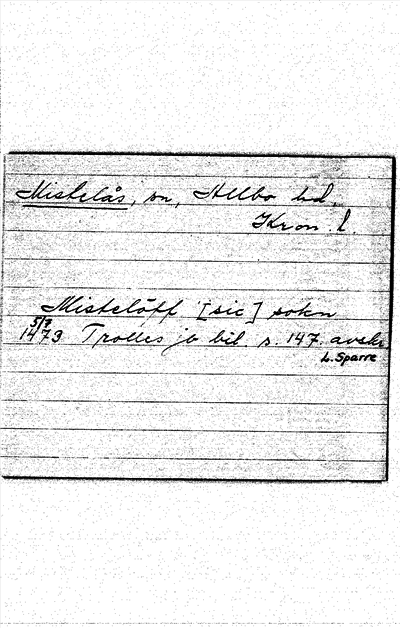 Mistelås, sn, Allbo hd,
Kron. l.
Mistelöff [sic] sokn
5/7
1473 Trolles jb bil. s. 147. avskr
L. Sparre